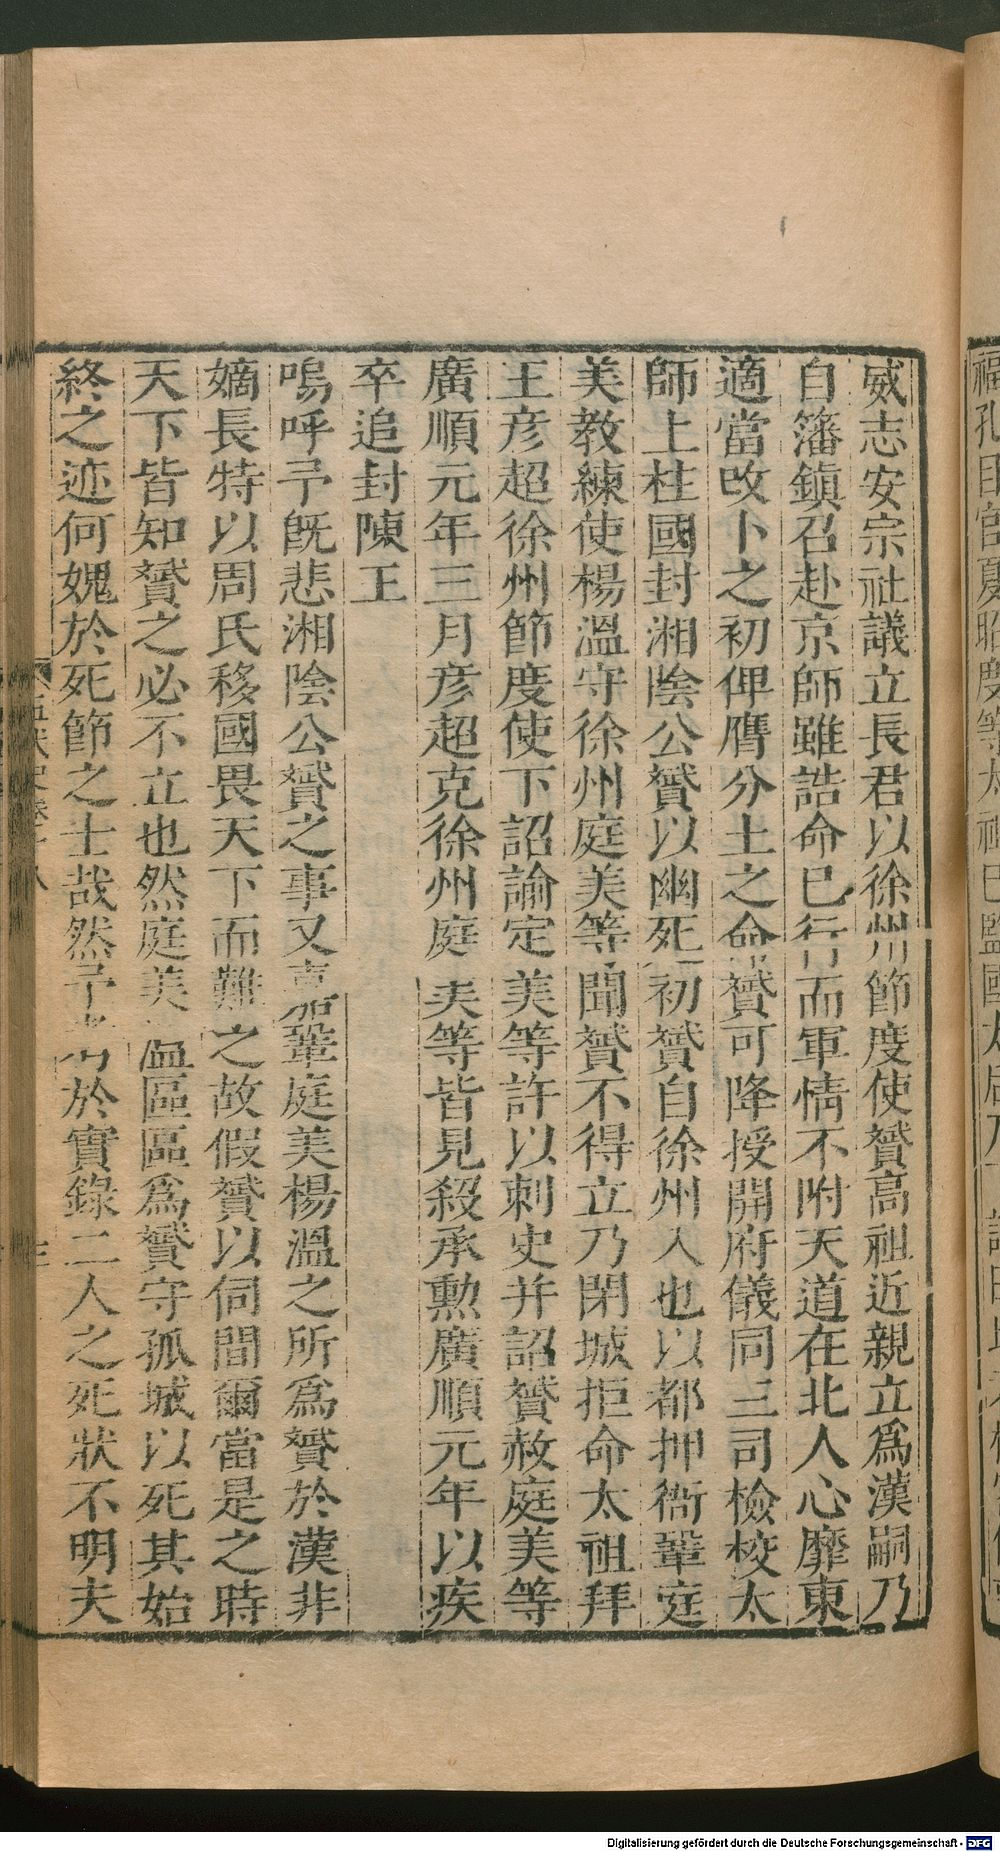 威志安宗社議立長君以徐州節度使贇高祖近親立爲漢嗣乃
自籓鎮召赴京師雖誥命已行而軍情不附天道在北人心靡東
適當改卜之初俾膺分土之命贇可降授開府儀同三司檢校太
師上柱國封湘陰公贇以幽死初贇自徐州入也以都押衙鞏庭
美教練使楊溫守徐州庭美等聞贇不得立乃閉城拒命太祖拜
王彥超徐州節度使下詔諭定美等許以刺史并詔贇赦庭美等
廣順元年三月彥超克徐州庭美等皆見殺承勲廣順元年以疾
卒追封陳王
嗚呼予旣悲湘陰公贇之事又嘉鞏庭美楊溫之所爲贇於漢非
嫡長特以周氏移國畏天下而難之故假贇以伺間爾當是之時
天下皆知贇之必不立也然庭美溫區區爲贇守孤城以死其始
終之迹何媿於死節之士哉然予考於實錄二人之死狀不明夫
五代史卷十八
Digitalisierung gefördert durch die Deutsche Forschungsgemeinschaft - DFG